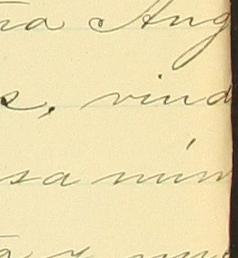 ra Ang
s, vind
sa min